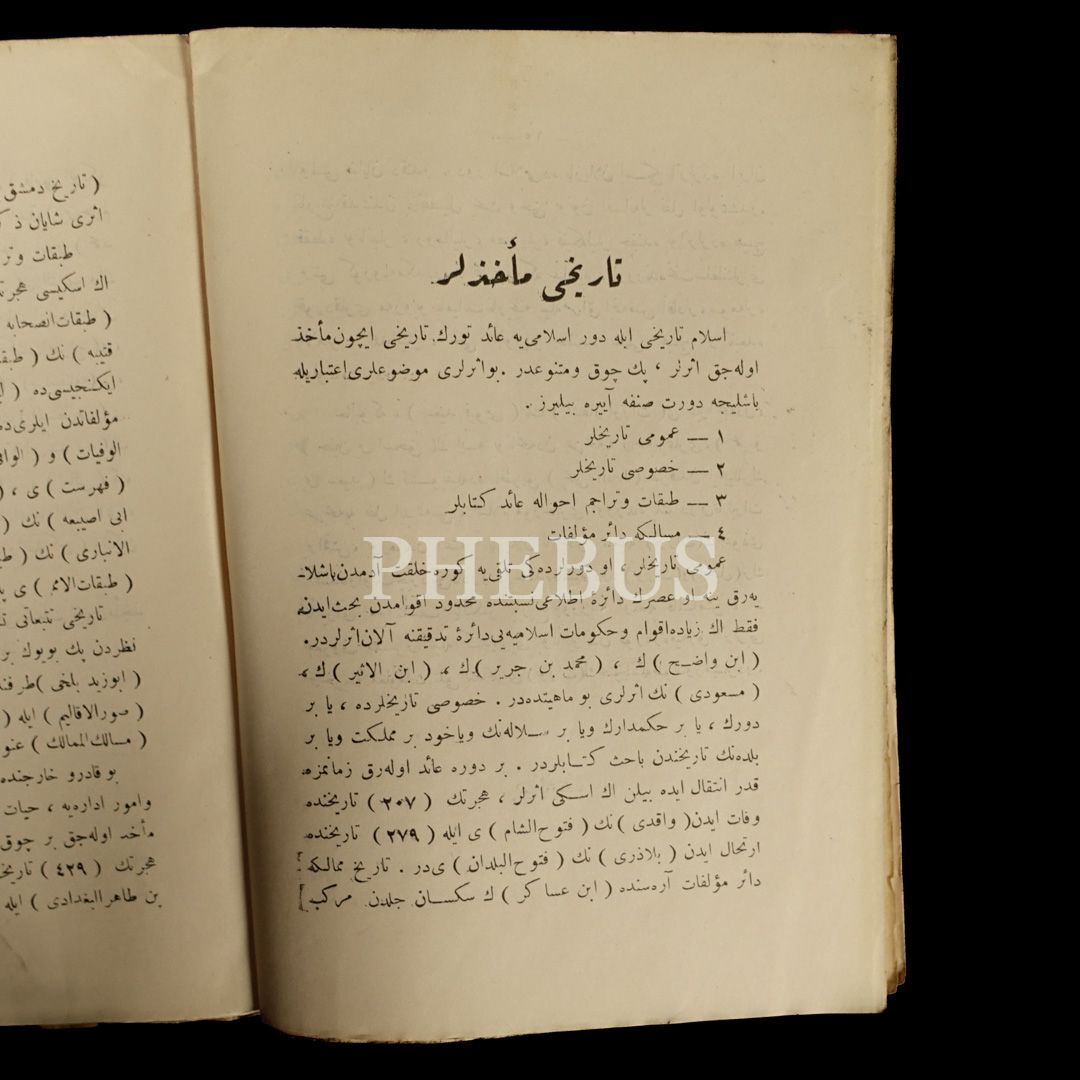 تاریخی مأخذلر
اسلام تاریخی ایله دور اسلامی‌یه عائد تورك تاریخی ایچون مأخذ
اوله‌جق اثرلر ، پك چوق ومتنوعدر . بواثرلری موضوعلری اعتباریله
باشلیجه دورت صنفه آییره بیلیرز .
١ — عمومی تاریخلر
٢ — خصوصی تاریخلر
٣ — طبقات وتراجم احواله عائد كتابلر
٤ — مسالكه دائر مؤلفات
PHEBUS
عمومی تاریخلر ، او دورلرده‌كی تلقی‌یه كوره خلقت آدمدن باشلا‌-
یه‌رق ینه او عصرك دائرۀ اطلاعی نسبتنده محدود اقوامدن بحث ایدن
فقط اك زیاده اقوام وحكومات اسلامیه‌یی دائرۀ تدقیقنه آلان اثرلردر .
( ابن واضح ) ك ، ( محمد بن جریر ) ك ، ( ابن الاثیر ) ك ،
( مسعودی ) نك اثرلری بو ماهیتده‌در . خصوصی تاریخلرده ، یا بر
دورك ، یا بر حكمدارك ویا بر سلاله‌نك ویاخود بر مملكت ویا بر
بلده‌نك تاریخندن باحث كتابلردر . بر دوره عائد اوله‌رق زمانمزه
قدر انتقال ایده بیلن اك اسكی اثرلر ، هجرتك ( ٢٠٧ ) تاریخنده
وفات ایدن ( واقدی ) نك ( فتوح الشام ) ی ایله ( ٢٧٩ ) تاریخنده
ارتحال ایدن ( بلاذری ) نك ( فتوح البلدان ) ی‌در . تاریخ ممالكه
دائر مؤلفات آره‌سنده ( ابن عساكر ) ك سكسان جلدن مركب
( تاریخ دمشق
اثری شایان ذ
طبقات وترا
اك اسكیسی هجرت
( طبقات الصحابه
قتیبه ) نك ( طبقا
ایكنجیسی‌ده (
مؤلفاتدن ایلری‌ده
الوفیات ) و ( الوافی
( فهرست ) ی ، (
ابی اصیبعه ) نك (
الانباری ) نك ( طبـ
( طبقات الامم ) ی
تاریخی تتبعاتی
نظردن پك بویوك بر
( ابوزید بلخی ) طرفند
( صور الاقالیم ) ایله (
( مسالك الممالك ) عنو
بو قادرو خارجنده
وامور اداریه ، حیات
مأخذ اوله‌جق بر چوق
هجرتك ( ٤٢٩ ) تاریخـ
بن طاهر البغدادی ) ایله